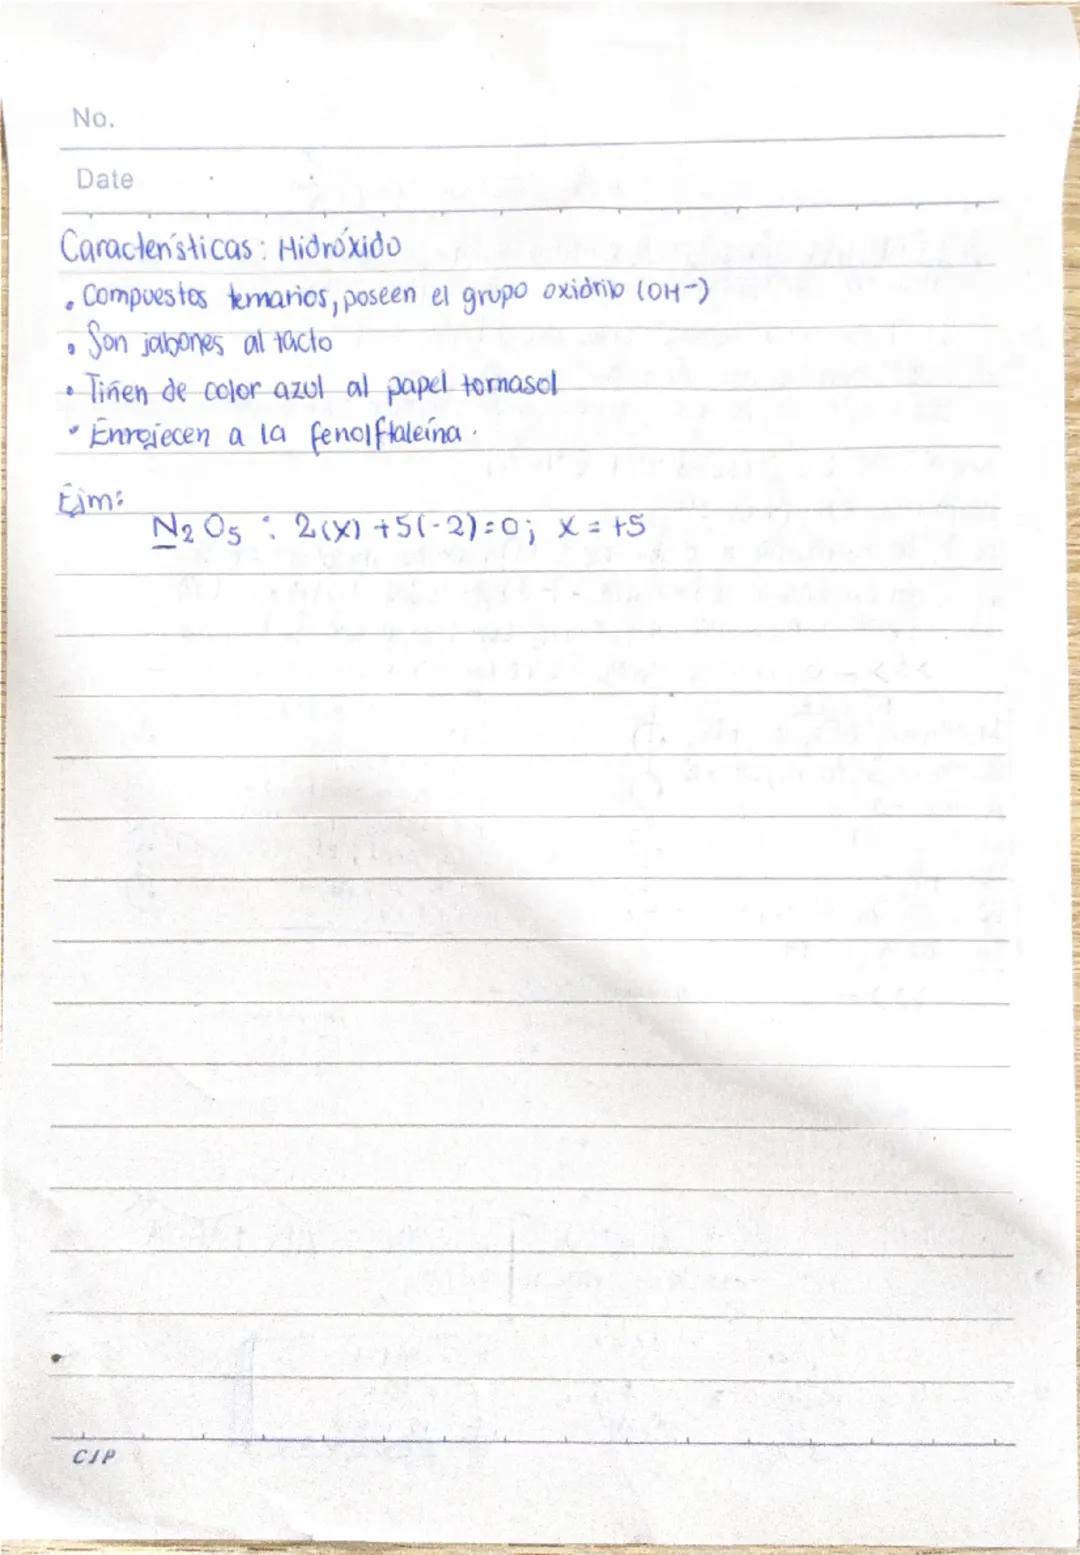 No.
Date
Características: Hidróxido
• Compuestos ternarios, poseen el grupo oxidrilo (OH-)
• Son jabones al tacto
• Tiñen de color azul al papel tornasol
• Enrojecen a la fenolftaleína.
Ejm:
N2O5: 2(x)+5(-2)=0; x=+5
CJP